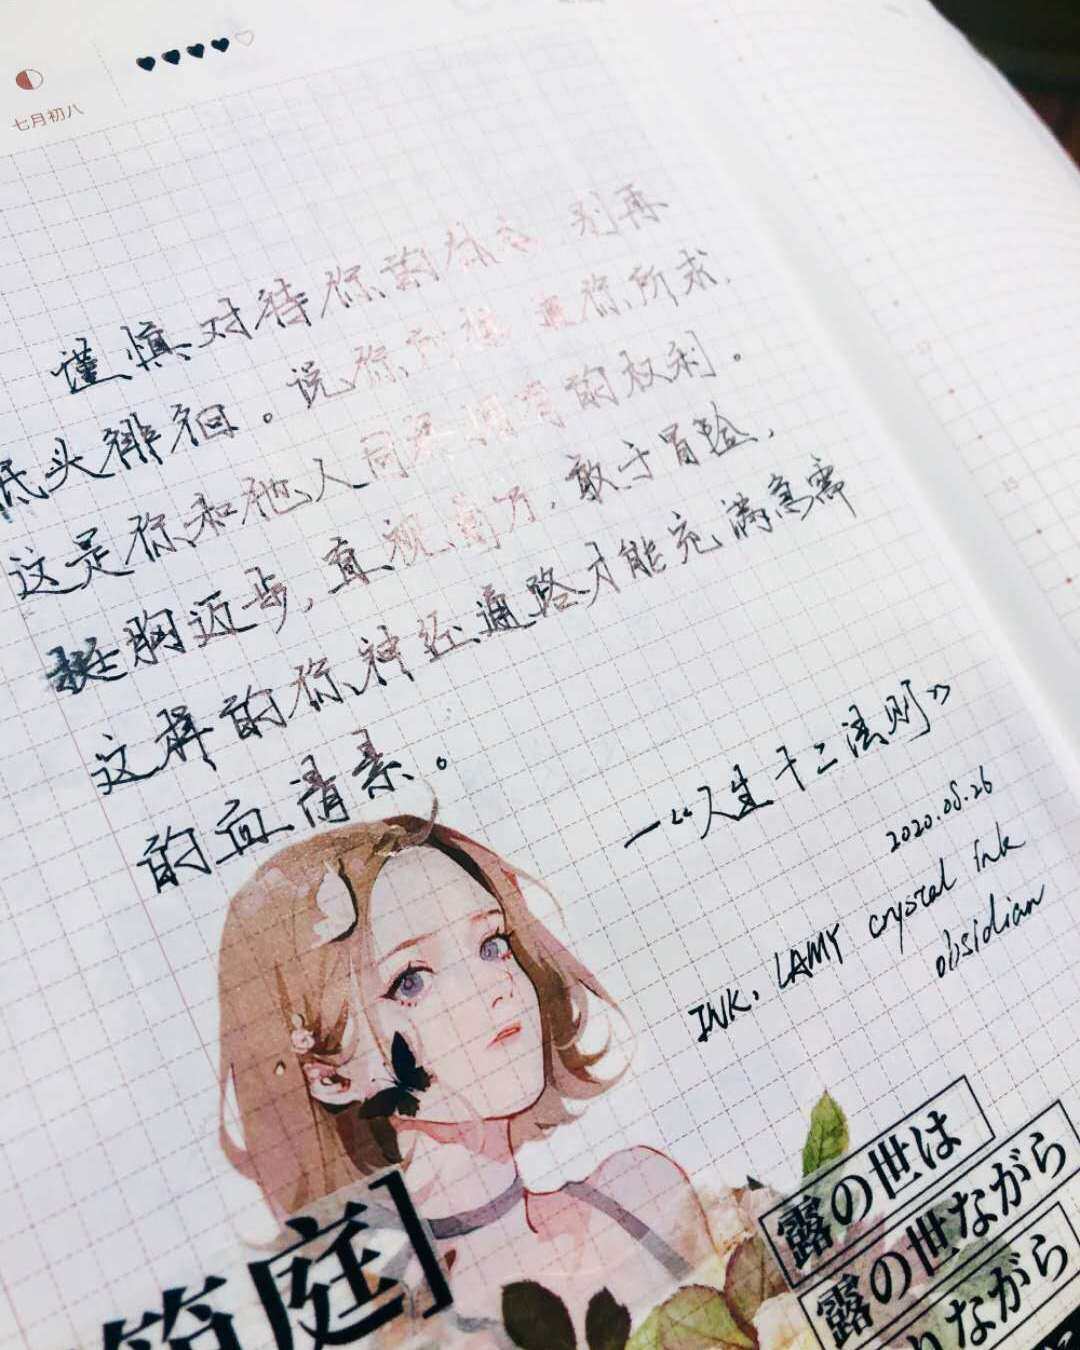 七月初八
谨慎对待你的体态 别再
低头徘徊。说你所想 求你所求,
这是你和他人同来拥有的权利。
挺胸迈步,直视前方,敢于冒险,
这样的你神经通路才能充满急需
的血清素。
—《人生十二法则》
2020.08.26
INK. LAMY crystal ink
obsidian
庭]
露の世は
露の世ながら
りながら